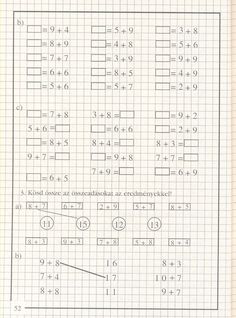 b)
□ = 9 + 4 □ = 5 + 9 □ = 3 + 8
□ = 8 + 9 □ = 4 + 8 □ = 5 + 6
□ = 7 + 7 □ = 3 + 9 □ = 9 + 9
□ = 6 + 6 □ = 8 + 5 □ = 4 + 9
□ = 8 + 6 □ = 5 + 7 □ = 2 + 9
c)
□ = 7 + 8 3 + 8 = □ □ = 9 + 2
5 + 6 = □ □ = 6 + 6 □ = 2 + 9
□ = 8 + 5 8 + 4 = □ 8 + 3 = □
9 + 7 = □ □ = 9 + 8 7 + 7 = □
□ = 6 + 5 □ = 9 + 7
3. Kösd össze az összeadásokat az eredményekkel!
a) 8 + 7 6 + 7 2 + 9 5 + 7 8 + 5
11 15 12 13
8 + 3 9 + 3 7 + 8 5 + 8 8 + 4
b)
9 + 8 16 8 + 3
7 + 4 17 10 + 7
8 + 8 11 9 + 7
52